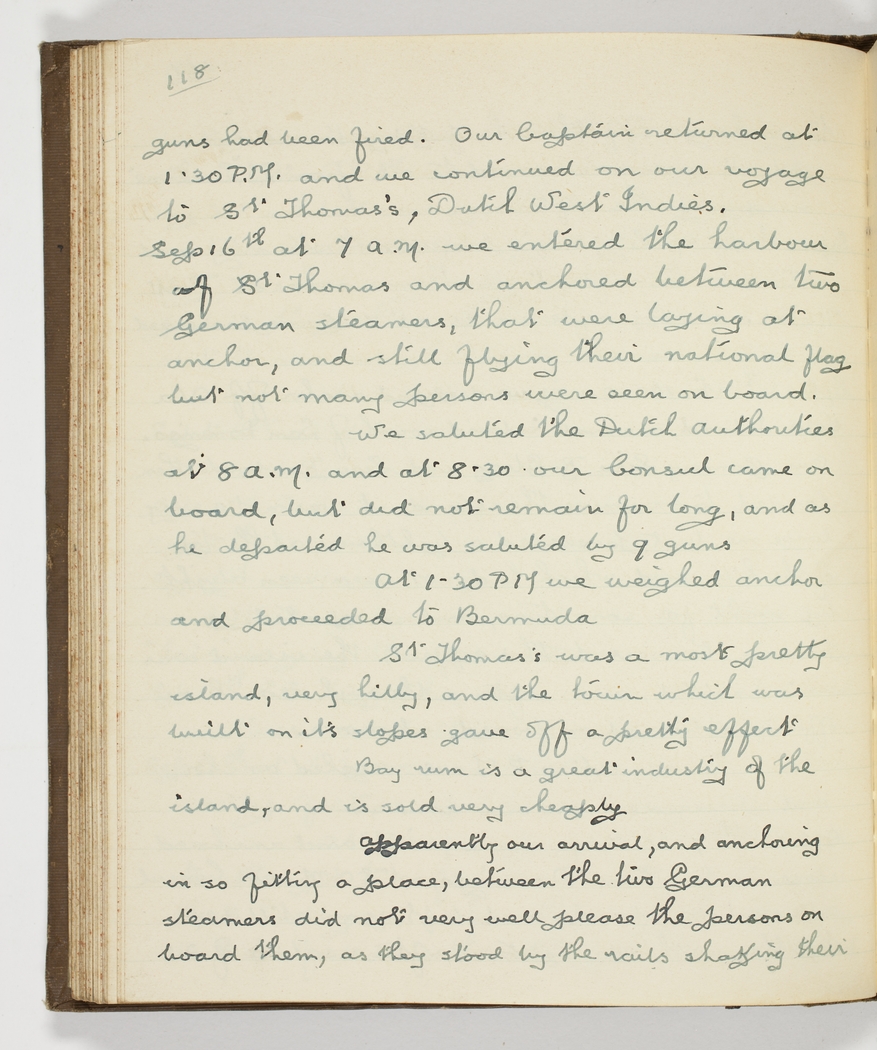 118
guns had been fired. Our Captain returned at
1·30 P.M. and we continued on our voyage
to St Thomas's, Dutch West Indies.
Sep 16th at 7 a.m. we entered the harbour
of St Thomas and anchored between two
German steamers, that were laying at
anchor, and still flying their national flag
but not many persons were seen on board.
We saluted the Dutch authorities
at 8 a.m. and at 8·30 our Consul came on
board, but did not remain for long, and as
he departed he was saluted by 9 guns
At 1-30 PM we weighed anchor
and proceeded to Bermuda
St Thomas's was a most pretty
island, very hilly, and the town which was
built on it's slopes gave off a pretty effect
Bay rum is a great industry of the
island, and is sold very cheaply
apparently our arrival, and anchoring
in so fitting a place, between the two German
steamers did not very well please the persons on
board them, as they stood by the rails shaking their